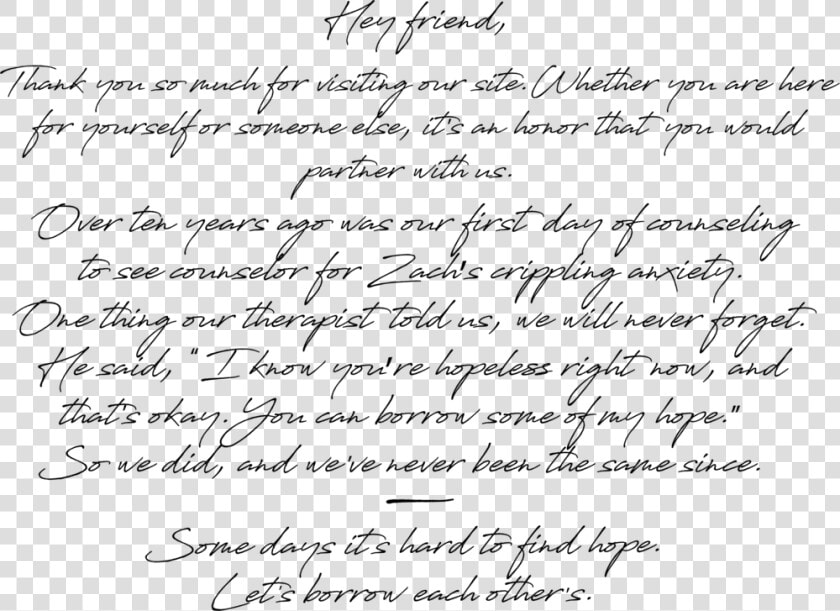 Hey friend,
Thank you so much for visiting our site. Whether you are here
for yourself or someone else, it's an honor that you would
partner with us.
Over ten years ago was our first day of counseling
to see counselor for Zach's crippling anxiety.
One thing our therapist told us, we will never forget.
He said, "I know you're hopeless right now, and
that's okay. You can borrow some of my hope."
So we did, and we've never been the same since.
Some days it's hard to find hope.
Let's borrow each other's.